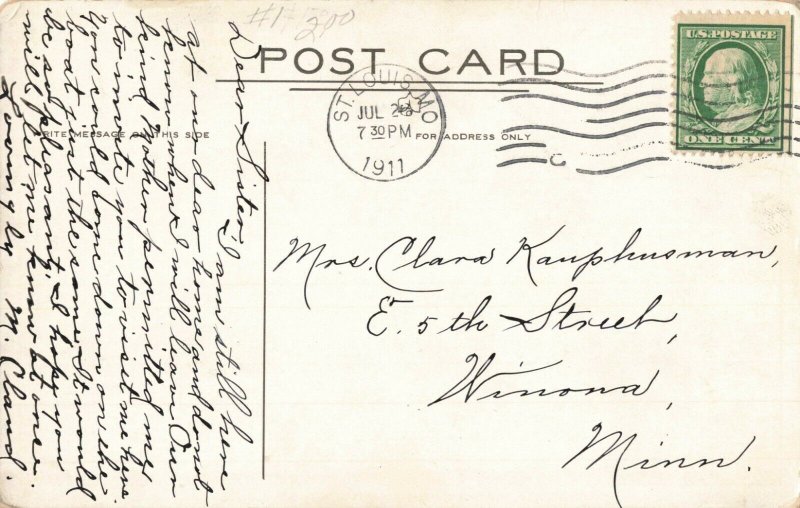 #1- 200
POST CARD
WRITE MESSAGE ON THIS SIDE
FOR ADDRESS ONLY
ST. LOUIS, MO
JUL 23
7 30 PM
1911
U.S. POSTAGE
ONE CENT
Dear Sister, I am still here
at our dear home and do not
know when I will leave. Our
kind Mother permitted me
to invite you to visit me here.
You could come down on the
boat just the same. It would
be so pleasant, I hope you
will let me know at once.
Lovingly M. Claud.
Mrs. Clara Kauphusman,
E. 5th Street,
Winona,
Minn.